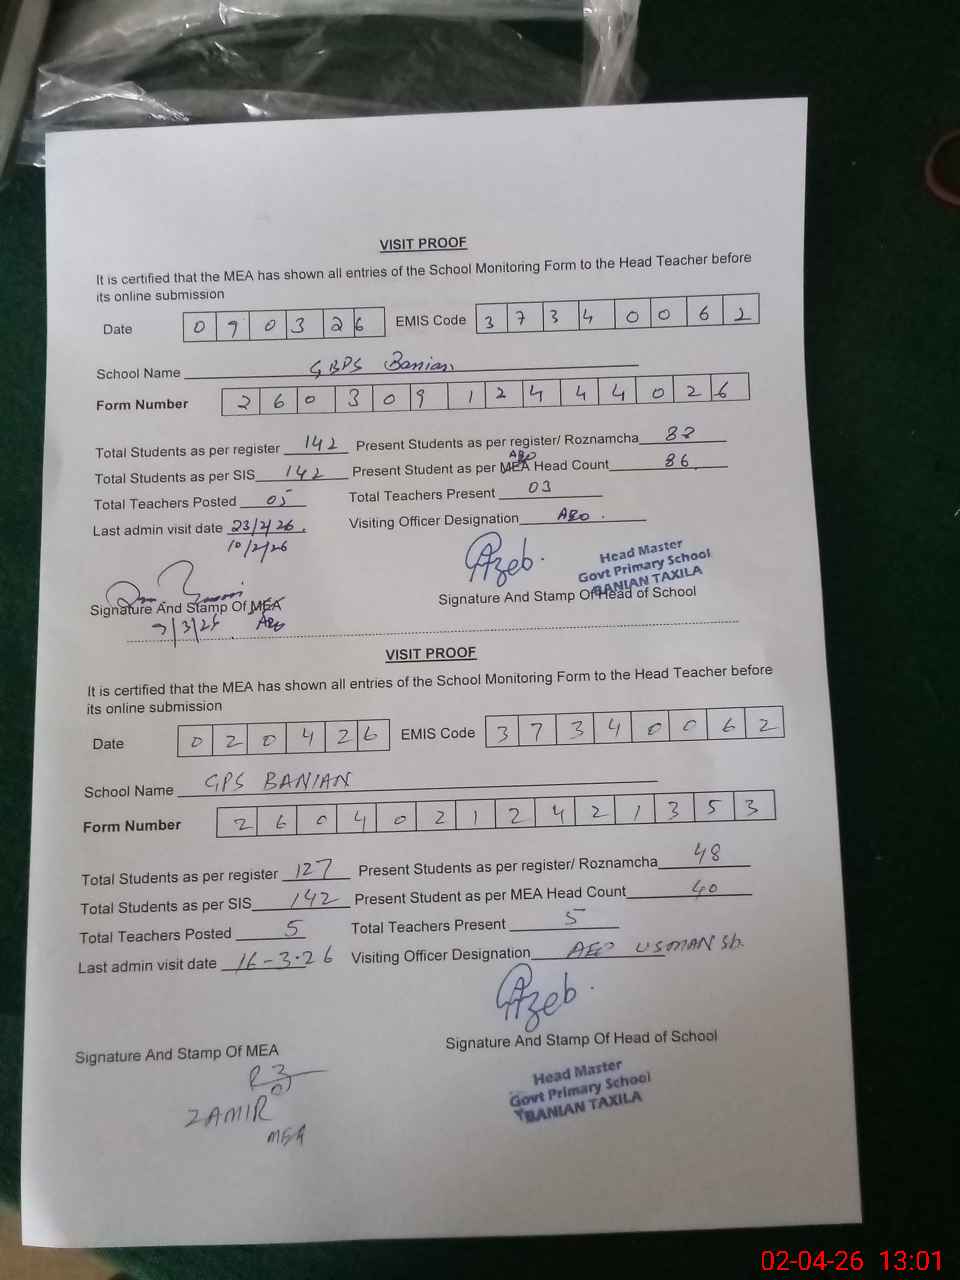 VISIT PROOF
It is certified that the MEA has shown all entries of the School Monitoring Form to the Head Teacher before
its online submission
Date 0 9 0 3 2 6 EMIS Code 3 7 3 4 0 0 6 2
School Name GBPS Banian
Form Number 2 6 0 3 0 9 1 2 4 4 4 0 2 6
Total Students as per register 142 Present Students as per register/ Roznamcha 88
AEO
Total Students as per SIS 142 Present Student as per MEA Head Count 86
Total Teachers Posted 05 Total Teachers Present 03
Last admin visit date 23/2/26 Visiting Officer Designation AEO.
10/2/26
Azeb.
Head Master
Govt Primary School
BANIAN TAXILA
Signature And Stamp Of MEA Signature And Stamp Of Head of School
AEO
VISIT PROOF
It is certified that the MEA has shown all entries of the School Monitoring Form to the Head Teacher before
its online submission
Date 0 2 0 4 2 6 EMIS Code 3 7 3 4 0 0 6 2
School Name GPS BANIAN
Form Number 2 6 0 4 0 2 1 2 4 2 1 3 5 3
Total Students as per register 127 Present Students as per register/ Roznamcha 48
Total Students as per SIS 142 Present Student as per MEA Head Count 40
Total Teachers Posted 5 Total Teachers Present 5
Last admin visit date 16-3-26 Visiting Officer Designation AEO USMAN Sb.
Azeb.
Signature And Stamp Of MEA Signature And Stamp Of Head of School
ZAMIR
MEA
Head Master
Govt Primary School
BANIAN TAXILA
02-04-26 13:01